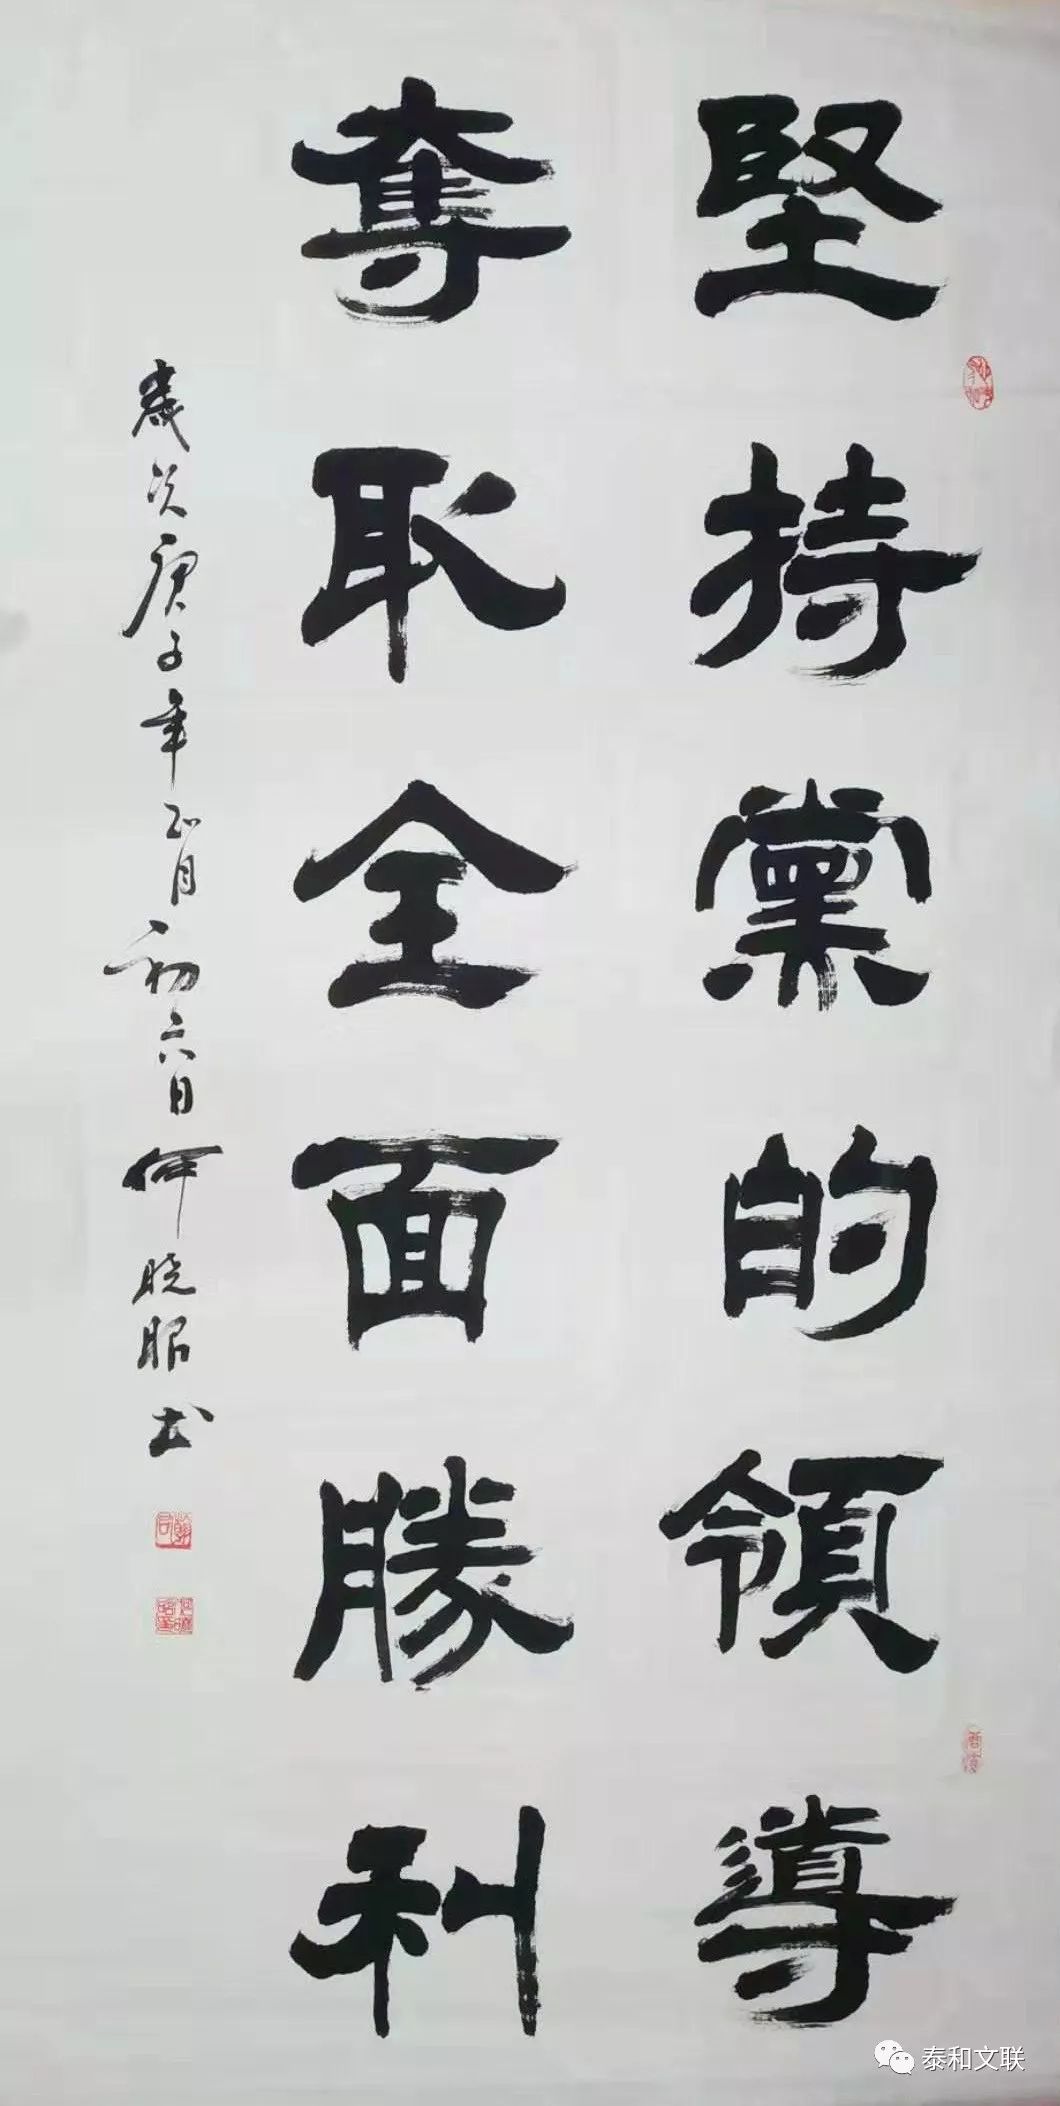 堅持黨的領導
奪取全面勝利
歲次庚子年正月初六日何晓昭书
泰和文联